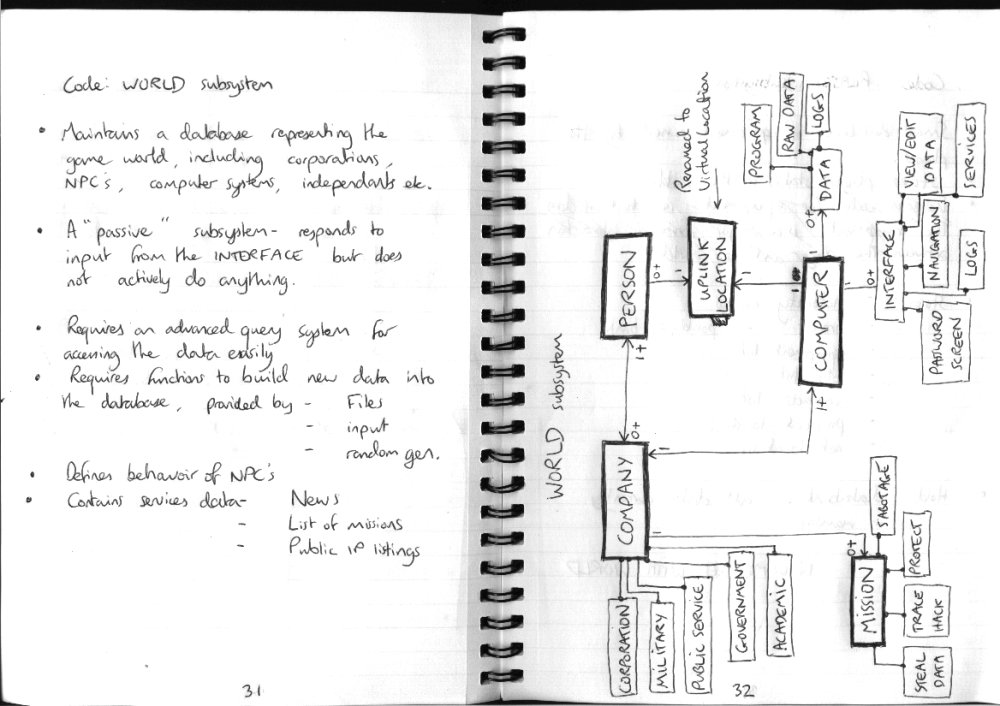 Code: WORLD subsystem
• Maintains a database representing the
game world, including corporations,
NPC's, computer systems, independants etc.
• A "passive" subsystem - responds to
input from the INTERFACE but does
not actively do anything.
• Requires an advanced query system for
accessing the data easily
• Requires functions to build new data into
the database, provided by - Files
- input
- random gen.
• Defines behavoir of NPC's
• Contains services data - News
- List of missions
- Public IP listings
31
WORLD subsystem
PERSON
0+
1
1+
0+
Renamed to
Virtual Location
UPLINK
LOCATION
1
PROGRAM
RAW DATA
LOGS
DATA
0+
COMPUTER
1
1
1+
0+
INTERFACE
VIEW/EDIT
DATA
SERVICES
NAVIGATION
LOGS
PASSWORD
SCREEN
COMPANY
1
1
CORPORATION
MILITARY
PUBLIC SERVICE
GOVERNMENT
ACADEMIC
0+
MISSION
SABOTAGE
PROTECT
TRACE
HACK
STEAL
DATA
32